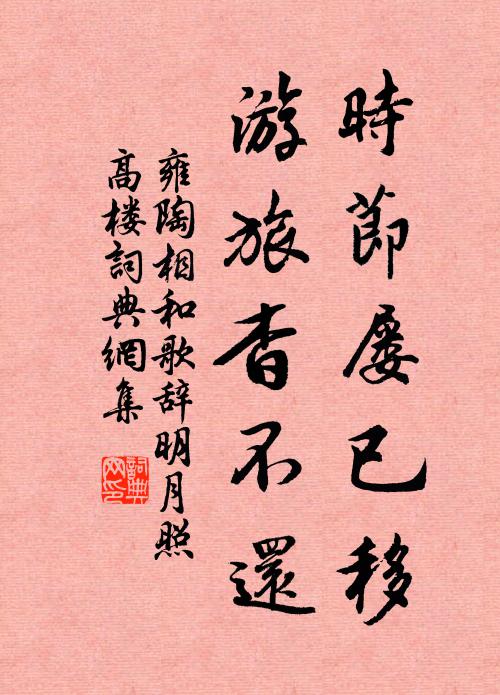 時節屡已移
游旅杳不還
雍陶相和歌辞明月照
高楼詞典網集
詞典网印